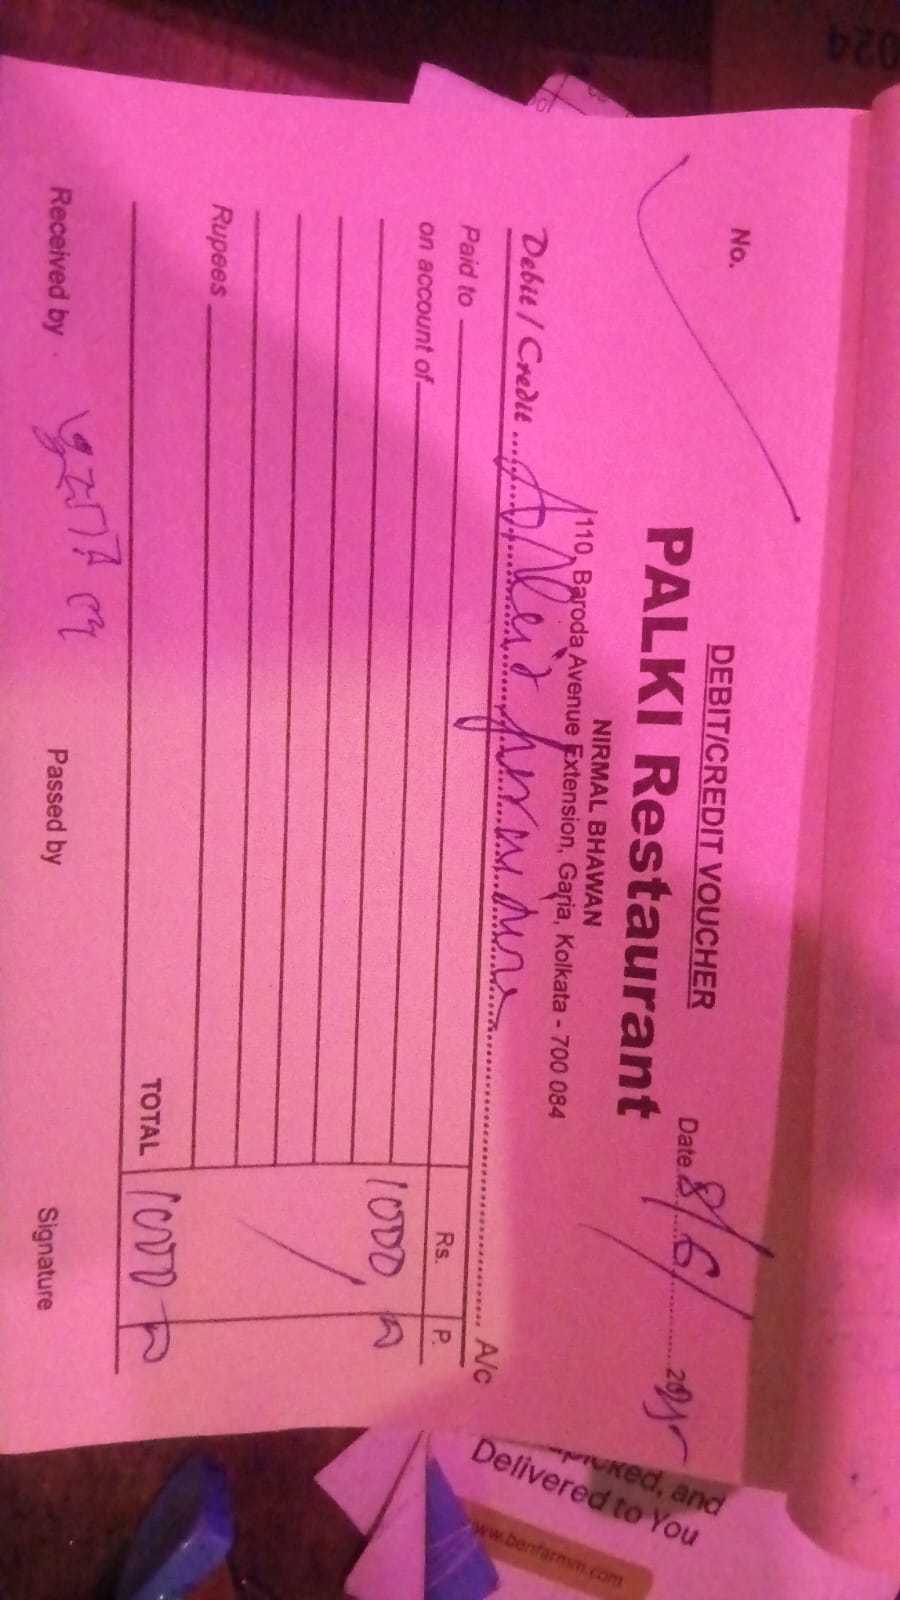 DEBIT/CREDIT VOUCHER
No.
Date 8/6/ 2025
PALKI Restaurant
NIRMAL BHAWAN
110, Baroda Avenue Extension, Garia, Kolkata - 700 084
Debit / Credit A/c
Paid to
Rs. P.
on account of
1000
Rupees
TOTAL 1000
Received by
Passed by
Signature
picked, and
Delivered to You
www.benfarmm.com
024